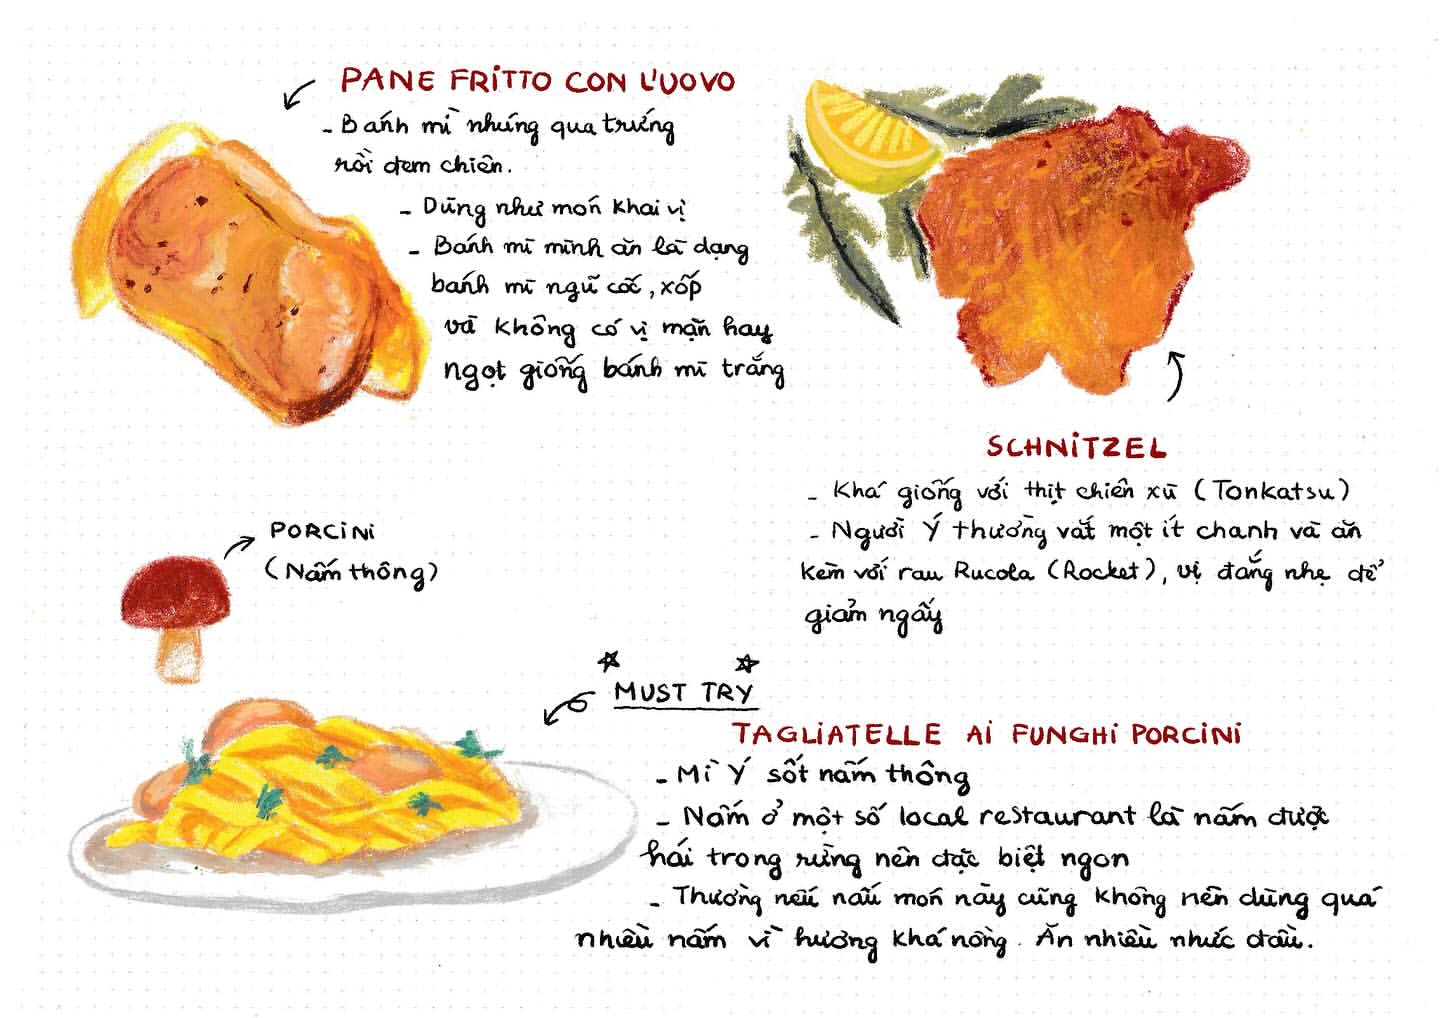 PANE FRITTO CON L'UOVO
- Bánh mì nhúng qua trứng
rồi đem chiên.
- Dùng như món khai vị
- Bánh mì mình ăn là dạng
bánh mì ngũ cốc, xốp
và không có vị mặn hay
ngọt giống bánh mì trắng
SCHNITZEL
- Khá giống với thịt chiên xù (Tonkatsu)
- Người Ý thường vắt một ít chanh và ăn
kèm với rau Rucola (Rocket), vị đắng nhẹ để
giảm ngấy
PORCINI
(Nấm thông)
MUST TRY
TAGLIATELLE AI FUNGHI PORCINI
- Mì Ý sốt nấm thông
- Nấm ở một số local restaurant là nấm được
hái trong rừng nên đặc biệt ngon
- Thường nếu nấu món này cũng không nên dùng quá
nhiều nấm vì hương khá nồng. Ăn nhiều nhức đầu.